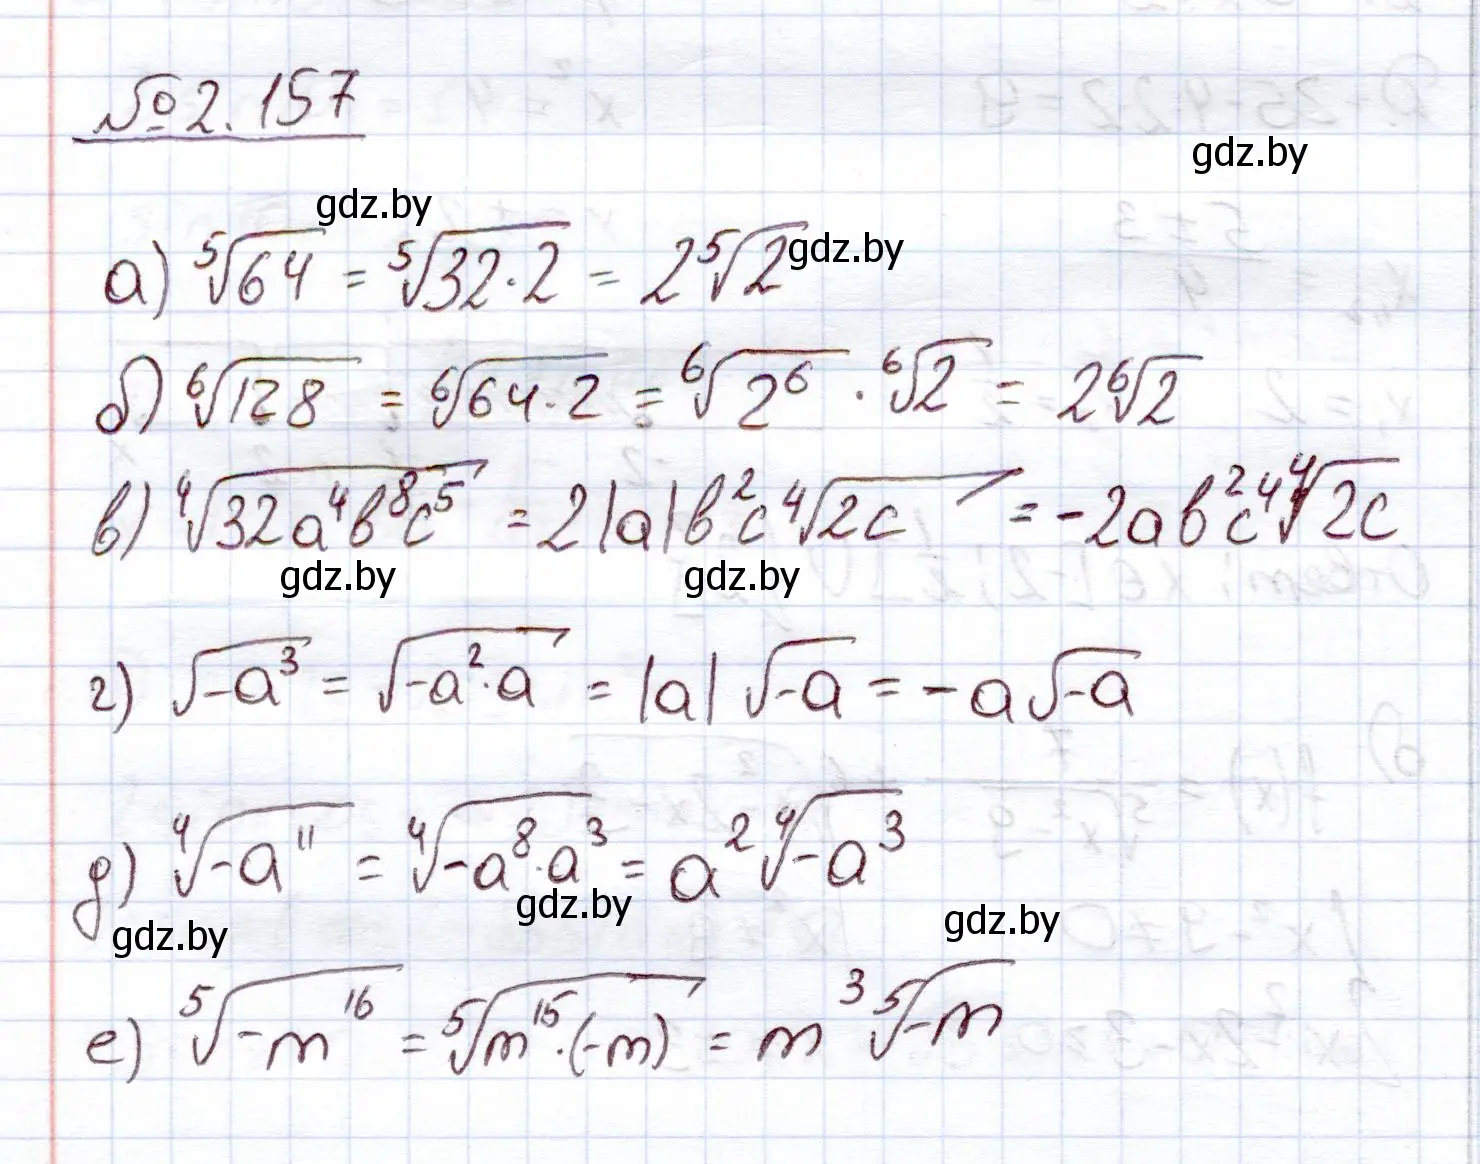 № 2.157
gdz.by
gdz.by
а) ⁵√64 = ⁵√(32·2) = 2 ⁵√2 gdz.by
б) ⁶√128 = ⁶√(64·2) = ⁶√(2⁶) · ⁶√2 = 2 ⁶√2
в) ⁴√(32a⁴b⁸c⁵) = 2|a|b²c ⁴√(2c) = -2ab²c ⁴√(2c)
gdz.by gdz.by
г) √(-a³) = √(-a²·a) = |a| √(-a) = -a√(-a)
д) ⁴√(-a¹¹) = ⁴√(-a⁸·a³) = a² ⁴√(-a³)
gdz.by gdz.by gdz.by
е) ⁵√(-m¹⁶) = ⁵√(m¹⁵·(-m)) = m³ ⁵√(-m)